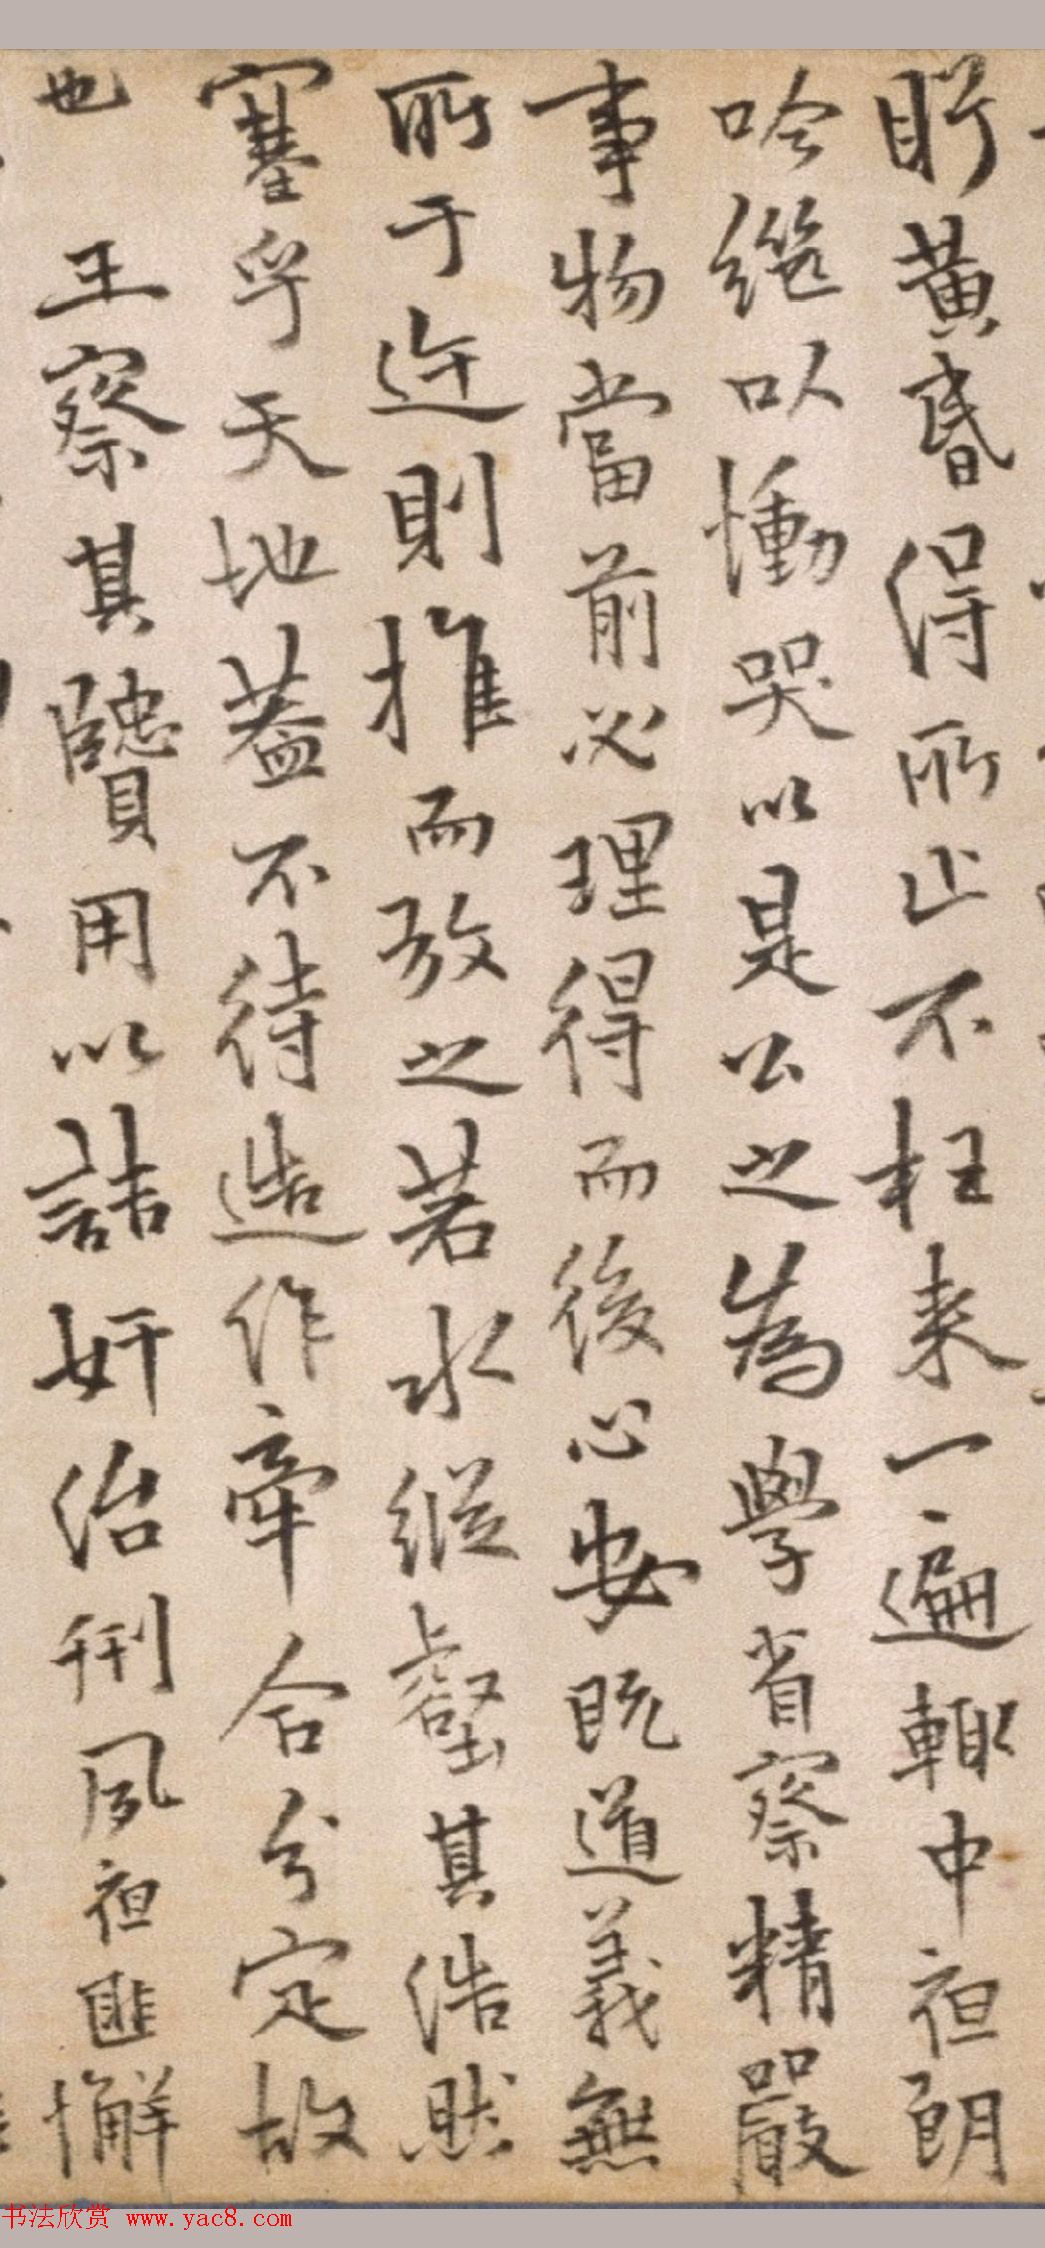 盱黃昏得所止不枉来一遍輙中夜朗
吟繼以慟哭以是公之為學省察精嚴
事物當前必理得而後心安既道義無
所于迕則推而放之若水縱壑其浩然
塞乎天地葢不待造作牽合分定故
也 王察其贒用以詰奸治刑夙夜匪懈
书法欣赏 www.yac8.com